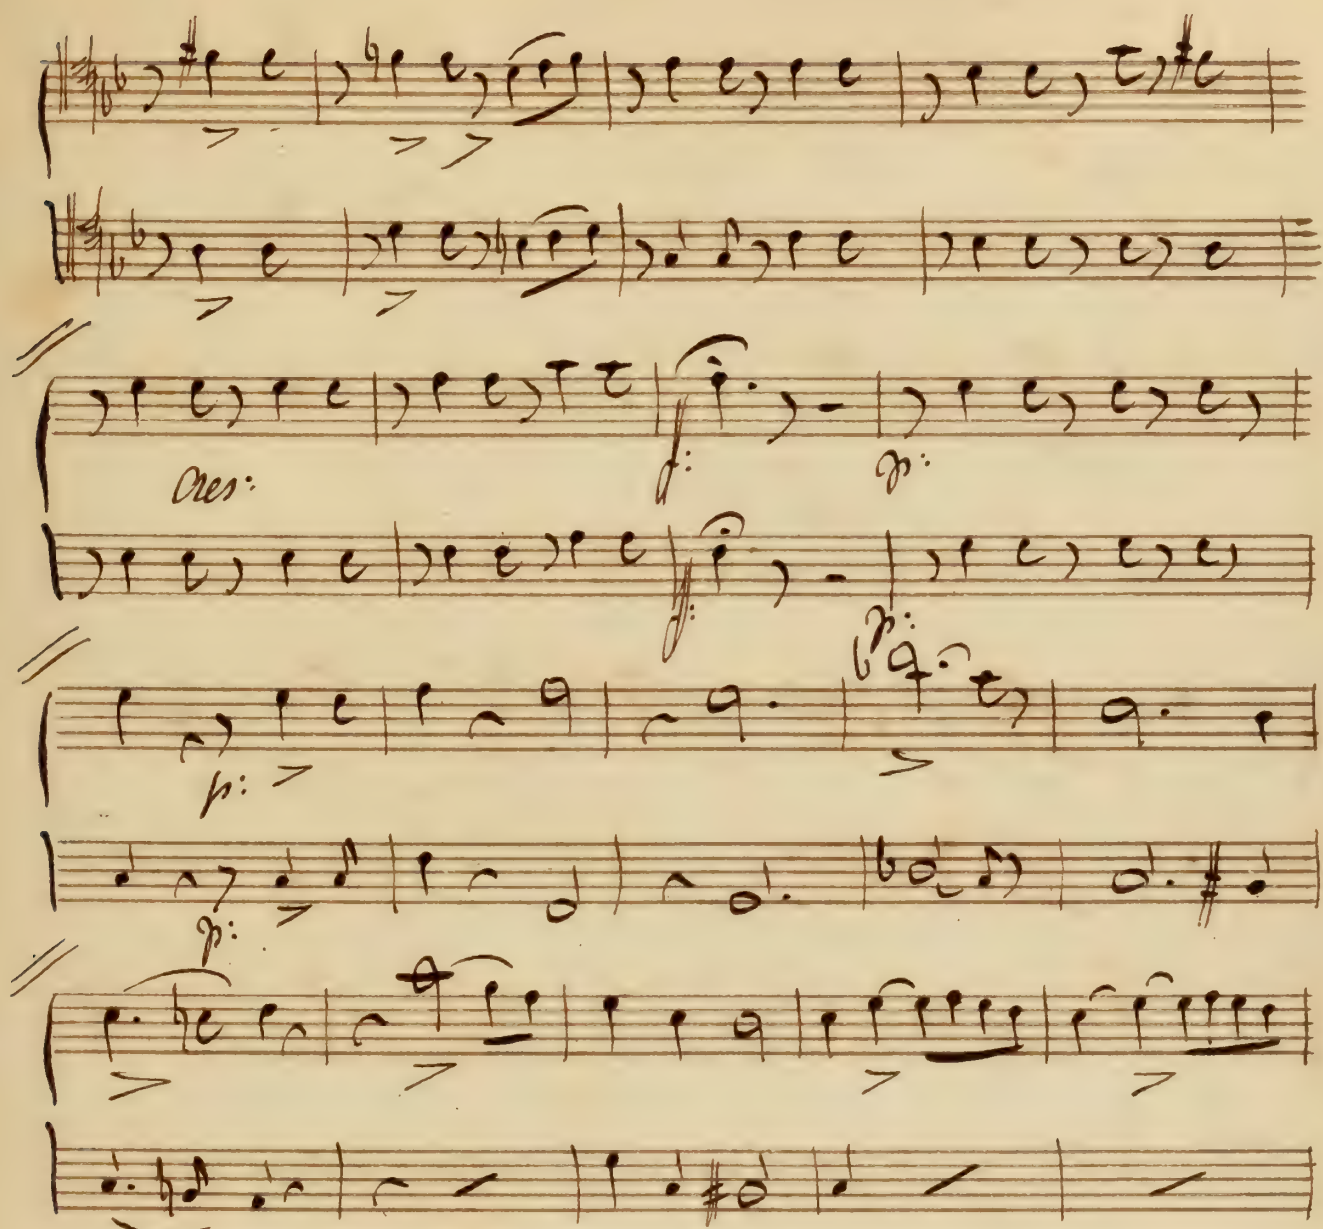 Cres:
f: p:
f: p:
p:
p: